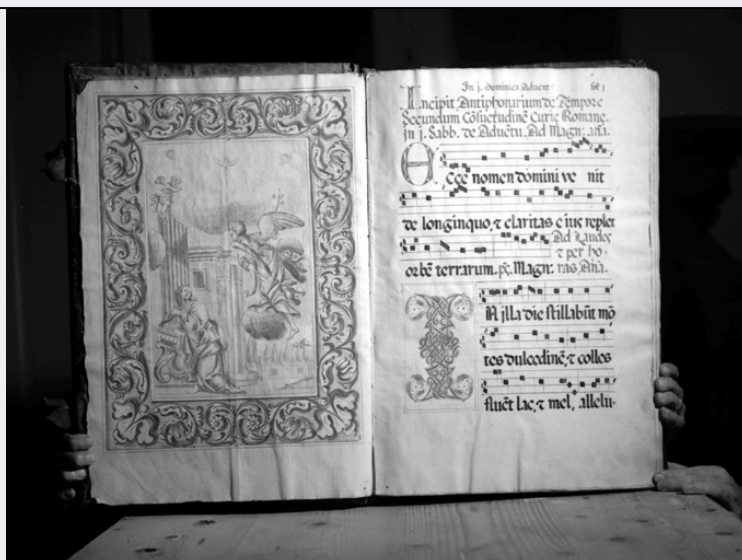 In j. dominica Advent fol j
Incipit Antiphonarium de Tempore
Secundum Cõsuetudinē Curie Romane.
In j. Sabb. de Aduētu. Ad Magn: aña.
Ecce nomen domini ve nit
de longinquo, ⁊ claritas e ius replet
Ad Laudes
⁊ per ho-
orbē terrarum. Magn: ras Aña.
IN jlla die stillabūt mō
tes dulcedinē, ⁊ colles
fluēt lac, ⁊ mel, allelu-